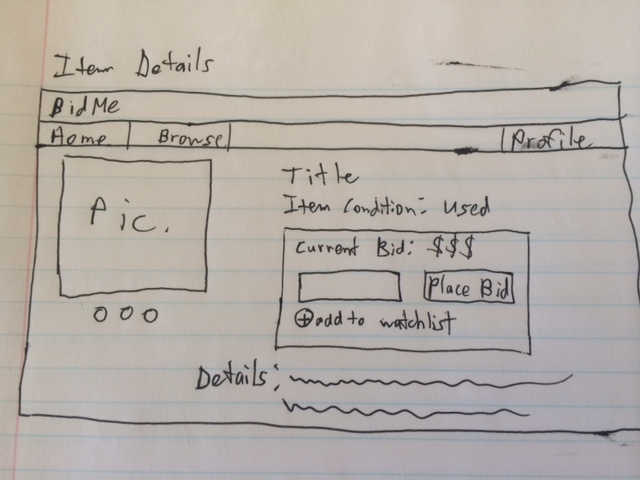 Item Details
BidMe
Home Browse Profile
Pic.
Title
Item Condition: Used
Current Bid: $$$
Place Bid
add to watchlist
Details: